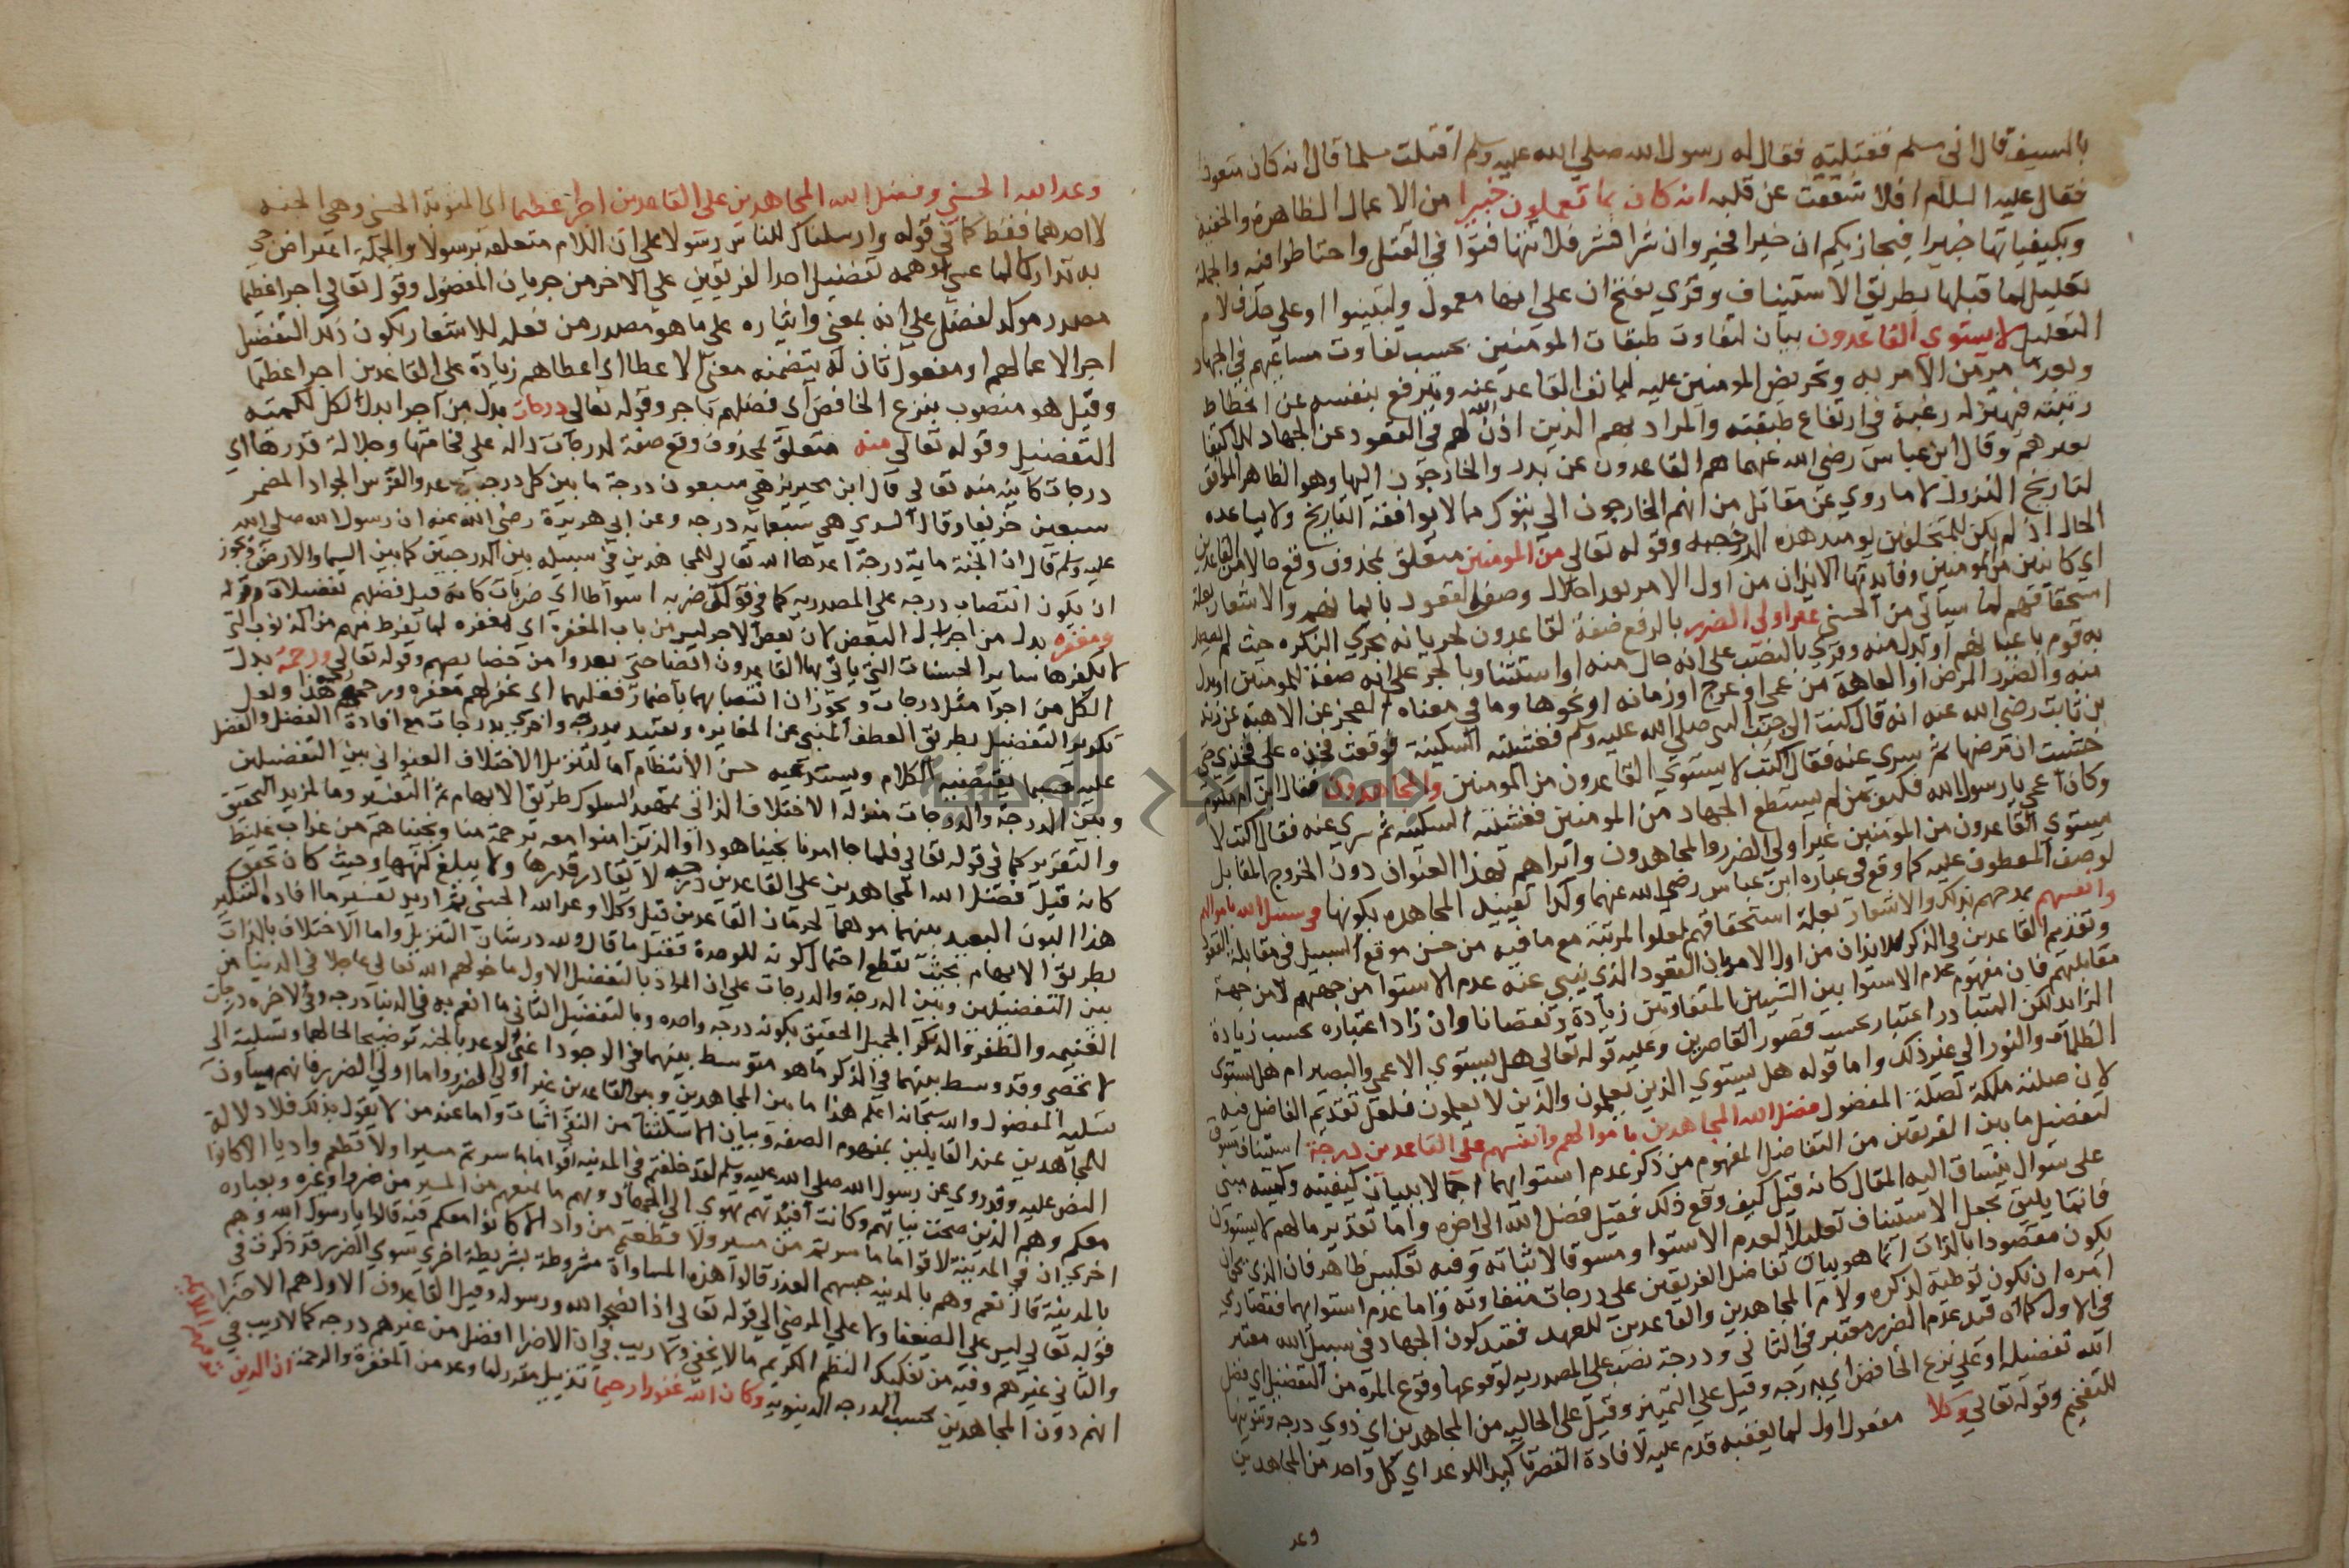 بالسيف قال اني مسلم فقتلته فقال له رسول الله صلي الله عليه وسلم اقتلت مسلما قال انه كان متعوذا
فقال عليه السلام افلا شققت عن قلبه ان كان بما تعملون خبيرا من الاعمال الظاهرة والخفية
وبكيفياتها خبيرا فيجازيكم ان خيرا فخير وان شرا فشر فلا تتهافتوا في القتل واحتاطوا فيه والجملة
تعليل لما قبلها بطريق الاستيناف وقري بفتح ان على انها معمول لتبينوا او على حذف لام
التعليل لا يستوي القاعدون بيان لتفاوت طبقات المومنين بحسب تفاوت مساعيهم في الجهاد
وبعد ما مر من الامر به وتحريض المومنين عليه ليانف القاعد عنه ويترفع بنفسه عن انحطاط
رتبته فيهتز له رغبة في ارتفاع طبقته والمراد بهم الذين اذن لهم في القعود عن الجهاد للاكتفا
بغيرهم وقال ابن عباس رضي الله عنهما هم القاعدون عن بدر والخارجون اليها وهو الظاهر الموافق
لتاريخ النزول لا ما روي عن مقاتل من انهم الخارجون الي تبوك مما لا يوافقه التاريخ ولا يساعده
الحال اذ لم يكن للمتخلفين يومئذ هذه الرخصه وقوله تعالي من المومنين متعلق بمحذوف وقع حالا من القاعدين
اي كاينين من المومنين وفايدتها الايذان من اول الامر بعدم اخلال وصف القعود بايمانهم والاشعار بعلة
استحقاقهم لما سياتي من الحسني غير اولي الضرر بالرفع صفة لقاعدون لجريانه مجري النكره حيث لم يقصد
به قوم باعيانهم او بدل منه وقري بالنصب على انه حال منه او استثنا وبالجر على انه صفة للمومنين او بدل
منه والضرر المرض او العاهة من عمي او عرج او زمانه او نحوها وما في معناه العجز عن الاهبة عن زيد
بن ثابت رضي الله عنه انه قال كنت الي جنب النبي صلي الله عليه وسلم فغشيته السكينة فوقعت فخذه على فخذي حتي
خشيت ان ترضها ثم سري عنه فقال اكتب لا يستوي القاعدون من المومنين والمجاهدون فقال ابن ام مكتوم
وكان اعمي يا رسول الله فكيف بمن لم يستطع الجهاد من المومنين فغشيته السكينة ثم سري عنه فقال اكتب لا
يستوي القاعدون من المومنين غير اولي الضرر والمجاهدون وايرادهم بهذا العنوان دون الخروج المقابل
لوصف المعطوف عليه كما وقع في عبارة ابن عباس رضي الله عنهما وكذا تقييد المجاهده بكونها في سبيل الله باموالهم
وانفسهم لمدحهم بذلك والاشعار بعلة استحقاقهم لعلو المرتبة مع ما فيه من حسن موقع السبيل في مقابلة القعود
وتقديم القاعدين في الذكر للايذان من اول الامر بان القعود الذي ينبي عنه عدم الاستوا من جهتهم لا من جهة
مقابليهم فان مفهوم عدم الاستوا بين الشيئين المتفاوتين زيادة ونقصانا وان زاد اعتباره بحسب زيادة
الزايد لكن المتبادر اعتباره بحسب قصور القاصرين وعليه قوله تعالي هل يستوي الاعمي والبصير ام هل تستوي
الظلمات والنور الي غير ذلك واما قوله هل يستوي الذين يعلمون والذين لا يعلمون فلعل تقديم الفاضل فيه
لان صلته ملكة لصلة المفضول فضل الله المجاهدين باموالهم وانفسهم على القاعدين درجة استيناف مسوق
لتفضيل ما بين الفريقين من التفاضل المفهوم من ذكر عدم استوايهما اجمالا ببيان كيفيته وكميته مبني
على سوال ينساق اليه المقال كانه قيل كيف وقع ذلك فقيل فضل الله الي اخره واما تقدير مالهم لا يستوون
فانما يليق بجعل الاستيناف تعليلا لعدم الاستوا ومسوقا لاثباته وفيه تعكيس ظاهر فان الذي يحق ان
يكون مقصودا بالذات انما هو بيان تفاضل الفريقين على درجات متفاوته واما عدم استوايهما فقصاري
امره ان يكون توطية لذكره ولام المجاهدين والقاعدين للعهد فقيد كون الجهاد في سبيل الله معتبر
في الاول كما ان قيد عدم الضرر معتبر في الثاني ودرجة نصب على المصدريه لوقوعها وقوع المره من التفضيل اي فضل
الله تفضيله او على نزع الخافض اي بدرجه وقيل على التمييز وقيل على الحاليه من المجاهدين اي ذوي درجه وتنوينها
للتفخيم وقوله تعالي وكلا مفعول اول لما يعقبه قدم عليه لافادة القصر تاكيدا للوعد اي كل واحد من المجاهدين
وعد
وعد الله الحسني وفضل الله المجاهدين على القاعدين اجرا عظيما اي المثوبة الحسني وهي الجنه
لا احدهما فقط كما في قوله وارسلناك للناس رسولا على ان اللام متعلقه برسولا والجمله اعتراض جي
به تداركا لما عسي يوهمه تفضيل احد الفريقين على الاخر من حرمان المفضول وقوله تعالي اجرا عظيما
مصدر موكد لفضل على انه بمعني وايثاره على ما هو مصدر من فعله للاشعار بكون ذلك التفضيل
اجر الاعمالهم او مفعول ثان له بتضمنه معني الاعطا اي اعطاهم زيادة على القاعدين اجرا عظيما
وقيل هو منصوب بنزع الخافض اي فضلهم باجر وقوله تعالي درجات بدل من اجرا بدل الكل لكميته
التفضيل وقوله تعالي منه متعلق بمحذوف وقع صفة لدرجات داله على فخامتها وجلالة قدرها اي
درجات كاينة منه تعالي قال ابن محيريز هي سبعون درجة ما بين كل درجتين عدو الفرس الجواد المضمر
سبعين خريفا وقال السدي هي سبعمايه درجه وعن ابي هريرة رضي الله عنه ان رسول الله صلي الله
عليه وسلم قال ان في الجنة ماية درجة اعدها الله تعالي للمجاهدين في سبيله بين الدرجتين كما بين السما والارض ويجوز
ان يكون انتصاب درجه على المصدريه كما في قولك ضربه اسواطا اي ضربات كانه قيل فضلهم تفضيلات وقوله
ومغفره بدل من اجرا بدل البعض لان بعض الاجر ليس من باب المغفرة اي مغفره لما يفرط منهم من الذنوب التي
لا يكفرها ساير الحسنات التي ياتي بها القاعدون ايضا حتي تعد من خصايصهم وقوله تعالي ورحمة بدل
الكل من اجرا مثل درجات ويجوز ان انتصابهما باضمار فعلهما اي غفر لهم مغفره ورحمهم رحمه هذا ولعل
تكرير التفضيل بطريق العطف المنبي عن المغايره وتقييده بدرجه واخري بدرجات مع افادة الفضل والفضل
عليه حسبما يقتضيه الكلام ويستدعيه حسن الانتظام اما لتنزيل الاختلاف العنواني بين التفضيلين
وبين الدرجة والدرجات منزله الاختلاف الذاتي تمهيدا لسلوك طريق الابهام ثم التفسير وما لمزيد التحقيق
والتقرير كما في قوله تعالي فلما جا امرنا نجينا هودا والذين امنوا معه برحمة منا ونجيناهم من عذاب غليظ
كانه قيل فضل الله المجاهدين على القاعدين درجه لا يقادر قدرها ولا يبلغ كنهها وحيث كان تحقق
هذا البون البعيد بينهما موهما لحرمان القاعدين قيل وكلا وعد الله الحسني ثم اريد تفسير ما افاده التنكير
بطريق الابهام بحيث يقطع احتمال كونه للوحدة فقيل ما قال ولله در شان التنزيل واما الاختلاف بالذات
بين التفضيلين وبين الدرجة والدرجات على ان المراد بالتفضيل الاول ما خولهم الله تعالي عاجلا في الدنيا من
الغنيمه والظفر والذكر الجميل الحقيق بكونه درجه واحده وبالتفضيل الثاني ما انعم به في الدنيا درجه وفي الاخره درجات
لا تحصي وقد وسط بينهما في الذكر ما هو متوسط بينهما في الوجود اعني الوعد بالجنه توضيحا لحالهما وتسلية الي
تسليه المفضول والله سبحانه اعلم هذا ما بين المجاهدين وبين القاعدين غير اولي الضرر واما اولي الضرر فانهم مساوون
للمجاهدين عند القايلين بمفهوم الصفه وبان الاستثنا من النفي اثبات واما عند من لا يقول بذلك فلا دلالة
النص عليه وقد روي عن رسول الله صلي الله عليه وسلم لقد خلفتم في المدينه اقواما ما سرتم مسيرا ولا قطعتم واديا الا كانوا
معكم وهم الذين صحت نياتهم وكانت افئدتهم تهوي الي الجهاد وبهم ما يمنعهم من المسير من ضرر او غيره وبعباره
اخري ان في المدينة لاقواما ما سرتم من مسير ولا قطعتم من واد الا كانوا معكم فيه قالوا يا رسول الله وهم
بالمدينة قال نعم وهم بالمدينه حبسهم العذر قالوا هذه المساواة مشروطة بشريطة اخري سوي الضرر قد ذكرت في
قوله تعالي ليس على الضعفا ولا على المرضي الي قوله تعالي اذا نصحوا لله ورسوله وقيل القاعدون الاول هم الاضرا
والثاني غيرهم وفيه من تفكيك النظم الكريم ما لا يخفي ولا ريب في ان الاضرا افضل من غيرهم درجه كما لا ريب في
انهم دون المجاهدين بحسب الدرجه الدنيويه وكان الله غفورا رحيما تذييل مقرر لما وعد من المغفرة والرحمة ان الذين